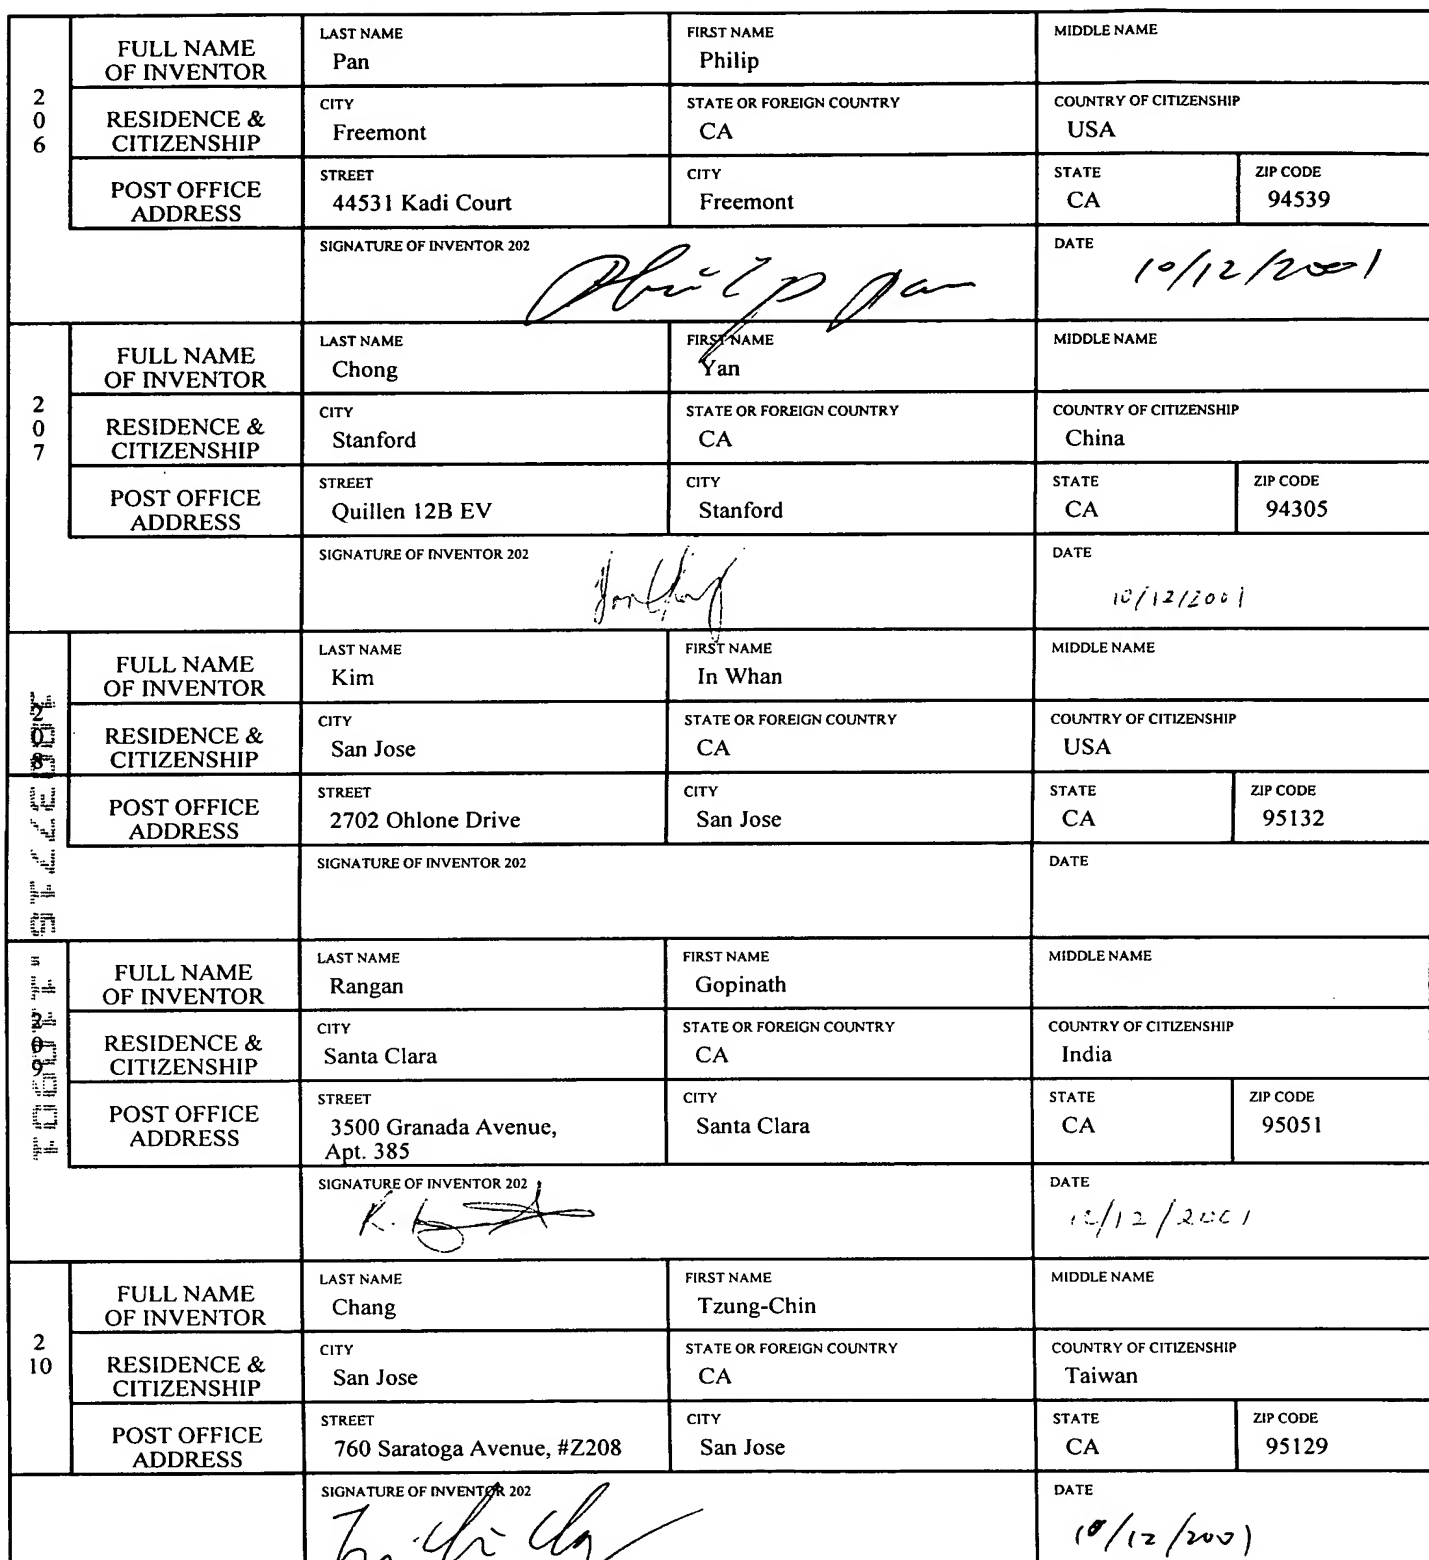 2
0
6
FULL NAME
OF INVENTOR
LAST NAME
Pan
FIRST NAME
Philip
MIDDLE NAME
RESIDENCE &
CITIZENSHIP
CITY
Freemont
STATE OR FOREIGN COUNTRY
CA
COUNTRY OF CITIZENSHIP
USA
POST OFFICE
ADDRESS
STREET
44531 Kadi Court
CITY
Freemont
STATE
CA
ZIP CODE
94539
SIGNATURE OF INVENTOR 202
Philip Pan
DATE
10/12/2001
2
0
7
FULL NAME
OF INVENTOR
LAST NAME
Chong
FIRST NAME
Yan
MIDDLE NAME
RESIDENCE &
CITIZENSHIP
CITY
Stanford
STATE OR FOREIGN COUNTRY
CA
COUNTRY OF CITIZENSHIP
China
POST OFFICE
ADDRESS
STREET
Quillen 12B EV
CITY
Stanford
STATE
CA
ZIP CODE
94305
SIGNATURE OF INVENTOR 202
DATE
10/12/2001
2
0
8
FULL NAME
OF INVENTOR
LAST NAME
Kim
FIRST NAME
In Whan
MIDDLE NAME
RESIDENCE &
CITIZENSHIP
CITY
San Jose
STATE OR FOREIGN COUNTRY
CA
COUNTRY OF CITIZENSHIP
USA
POST OFFICE
ADDRESS
STREET
2702 Ohlone Drive
CITY
San Jose
STATE
CA
ZIP CODE
95132
SIGNATURE OF INVENTOR 202
DATE
2
0
9
FULL NAME
OF INVENTOR
LAST NAME
Rangan
FIRST NAME
Gopinath
MIDDLE NAME
RESIDENCE &
CITIZENSHIP
CITY
Santa Clara
STATE OR FOREIGN COUNTRY
CA
COUNTRY OF CITIZENSHIP
India
POST OFFICE
ADDRESS
STREET
3500 Granada Avenue,
Apt. 385
CITY
Santa Clara
STATE
CA
ZIP CODE
95051
SIGNATURE OF INVENTOR 202
DATE
10/12/2001
2
10
FULL NAME
OF INVENTOR
LAST NAME
Chang
FIRST NAME
Tzung-Chin
MIDDLE NAME
RESIDENCE &
CITIZENSHIP
CITY
San Jose
STATE OR FOREIGN COUNTRY
CA
COUNTRY OF CITIZENSHIP
Taiwan
POST OFFICE
ADDRESS
STREET
760 Saratoga Avenue, #Z208
CITY
San Jose
STATE
CA
ZIP CODE
95129
SIGNATURE OF INVENTOR 202
DATE
10/12/2001